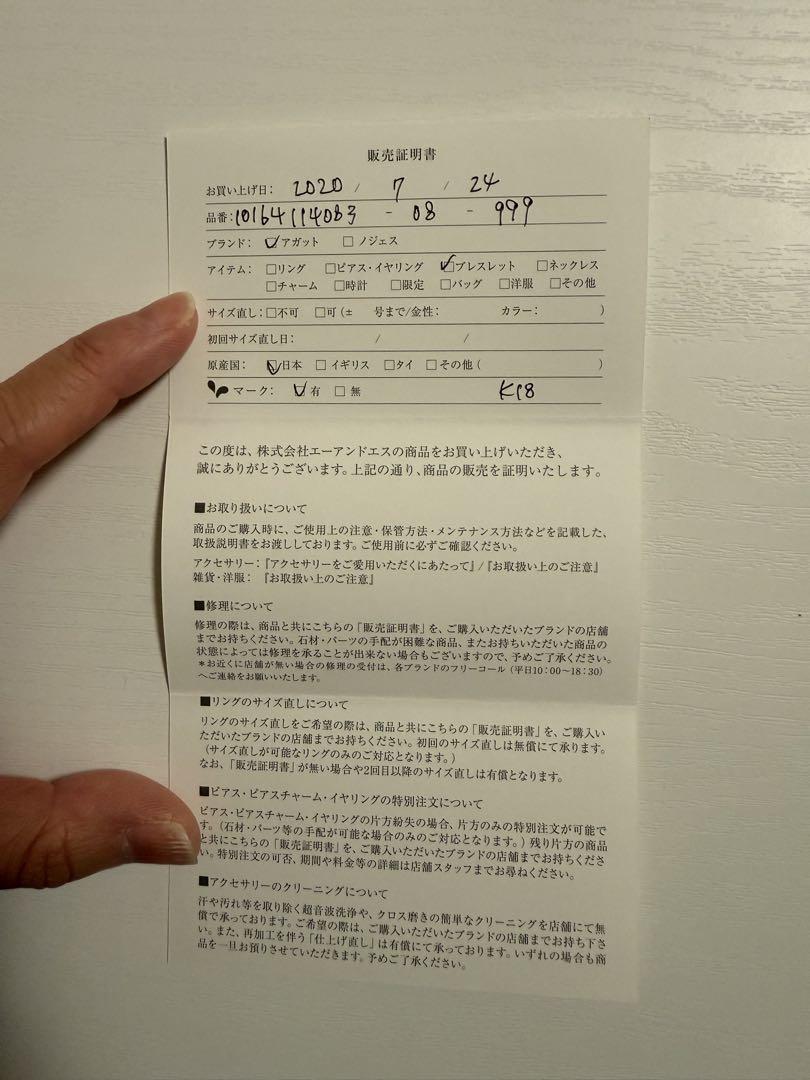 販売証明書
お買い上げ日： 2020 / 7 / 24
品番：10164114083 - 08 - 999
ブランド： ☑アガット □ノジェス
アイテム： □リング □ピアス・イヤリング ☑ブレスレット □ネックレス
□チャーム □時計 □限定 □バッグ □洋服 □その他
サイズ直し：□不可 □可（± 号まで/金性： カラー： ）
初回サイズ直し日： / /
原産国： ☑日本 □イギリス □タイ □その他（ ）
マーク： ☑有 □無 K18
この度は、株式会社エーアンドエスの商品をお買い上げいただき、
誠にありがとうございます。上記の通り、商品の販売を証明いたします。
■お取り扱いについて
商品のご購入時に、ご使用上の注意・保管方法・メンテナンス方法などを記載した、
取扱説明書をお渡ししております。ご使用前に必ずご確認ください。
アクセサリー：『アクセサリーをご愛用いただくにあたって』/『お取扱い上のご注意』
雑貨・洋服： 『お取扱い上のご注意』
■修理について
修理の際は、商品と共にこちらの「販売証明書」を、ご購入いただいたブランドの店舗
までお持ちください。石材・パーツの手配が困難な商品、またお持ちいただいた商品の
状態によっては修理を承ることが出来ない場合もございますので、予めご了承ください。
＊お近くに店舗が無い場合の修理の受付は、各ブランドのフリーコール（平日10：00〜18：30）
へご連絡をお願いいたします。
■リングのサイズ直しについて
リングのサイズ直しをご希望の際は、商品と共にこちらの「販売証明書」を、ご購入い
ただいたブランドの店舗までお持ちください。初回のサイズ直しは無償にて承ります。
（サイズ直しが可能なリングのみのご対応となります。）
なお、「販売証明書」が無い場合や2回目以降のサイズ直しは有償となります。
■ピアス・ピアスチャーム・イヤリングの特別注文について
ピアス・ピアスチャーム・イヤリングの片方紛失の場合、片方のみの特別注文が可能で
す。（石材・パーツ等の手配が可能な場合のみのご対応となります。）残り片方の商品
と共にこちらの「販売証明書」を、ご購入いただいたブランドの店舗までお持ちくださ
い。特別注文の可否、期間や料金等の詳細は店舗スタッフまでお尋ねください。
■アクセサリーのクリーニングについて
汗や汚れ等を取り除く超音波洗浄や、クロス磨きの簡単なクリーニングを店舗にて無
償で承っております。ご希望の際は、ご購入いただいたブランドの店舗までお持ち下さ
い。また、再加工を伴う「仕上げ直し」は有償にて承っております。いずれの場合も商
品を一旦お預りさせていただきます。予めご了承ください。